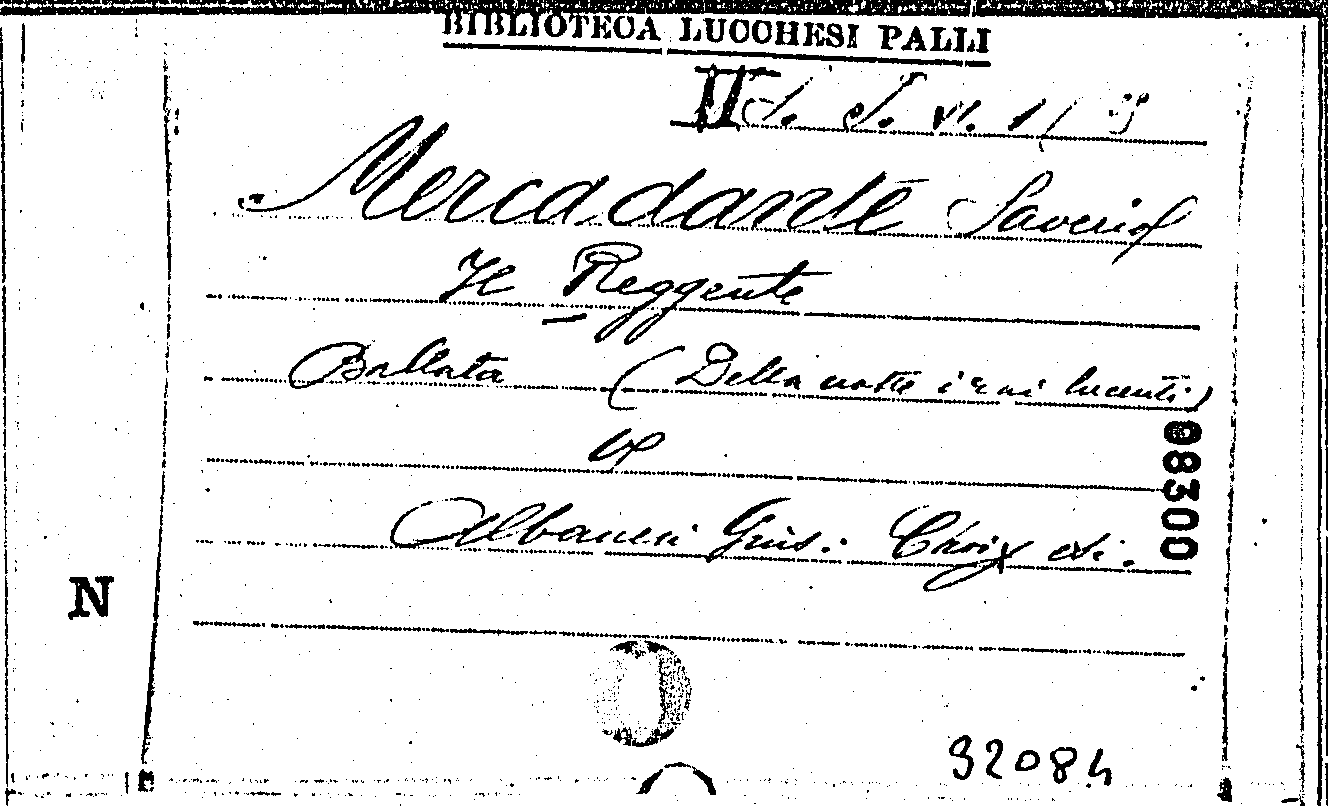 BIBLIOTECA LUCCHESI PALLI
II S. I. VI. 1/
Mercadante Saverio
Il Reggente
Ballata (Della notte i rai lucenti)
V
Albanesi Gius: Choix etc.
98300
N
92084